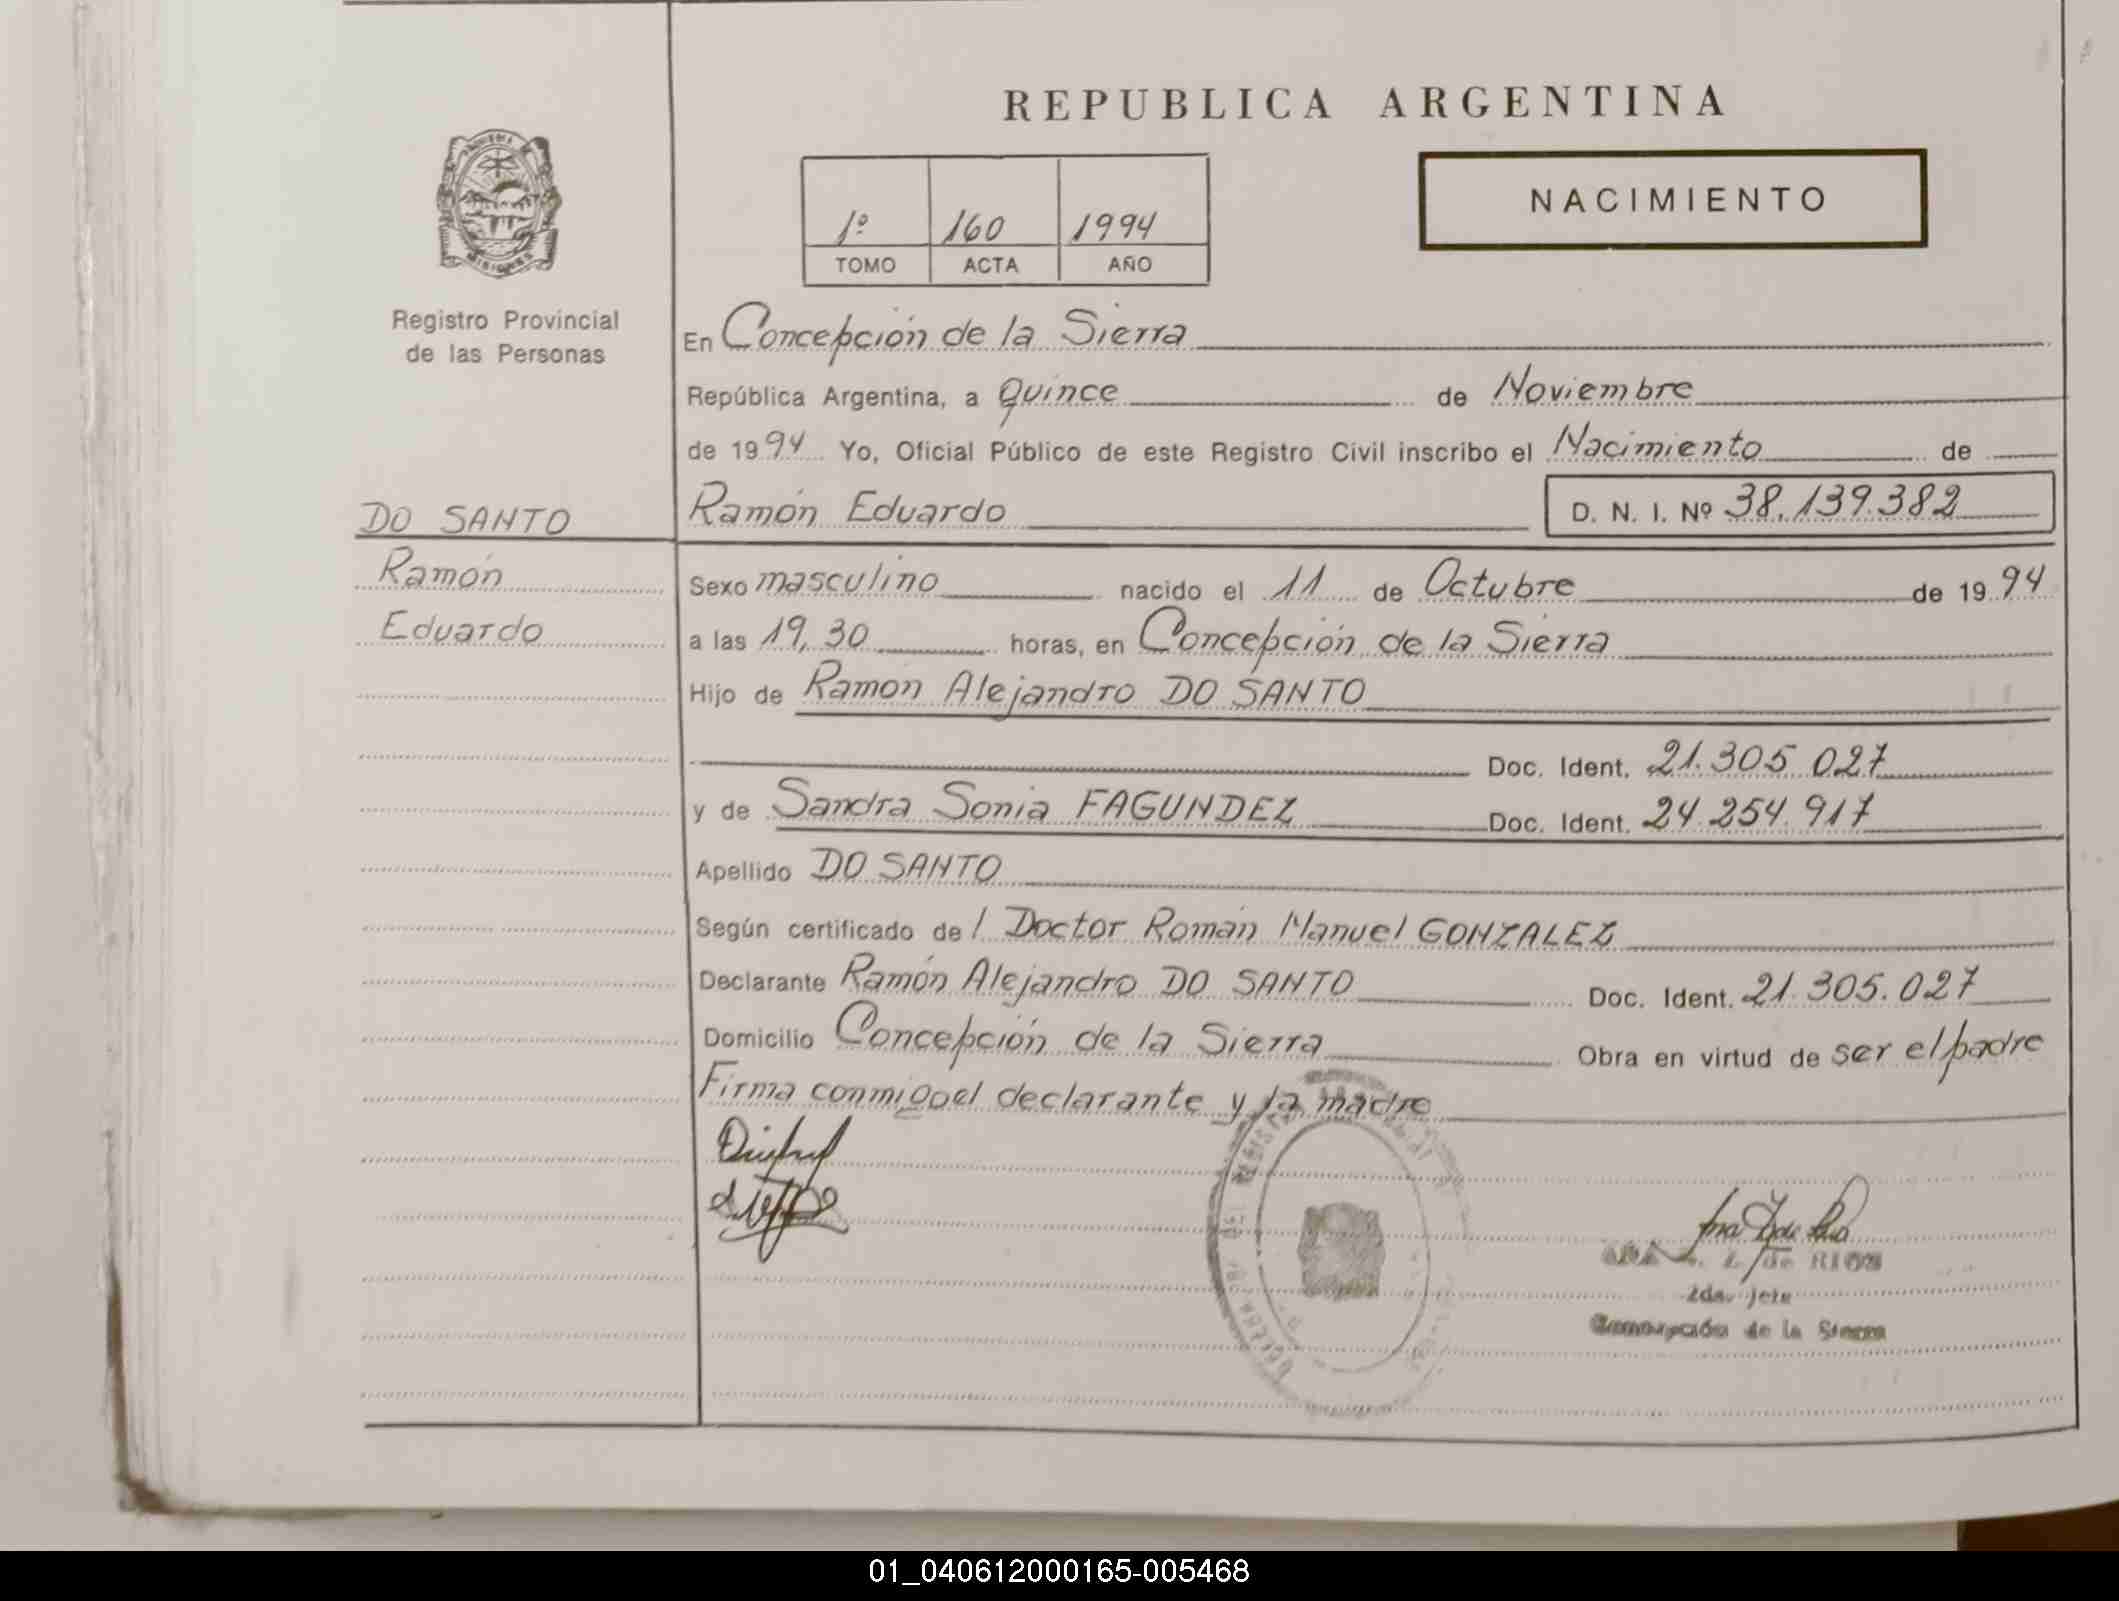 REPUBLICA ARGENTINA
NACIMIENTO
1º 160 1994
TOMO ACTA AÑO
MISIONES
Registro Provincial
de las Personas
En Concepción de la Sierra
República Argentina, a Quince de Noviembre
de 1994 Yo, Oficial Público de este Registro Civil inscribo el Nacimiento de
DO SANTO
Ramón Eduardo D. N. I. Nº 38.139.382
Ramón
Eduardo
Sexo masculino nacido el 11 de Octubre de 1994
a las 19,30 horas, en Concepción de la Sierra
Hijo de Ramón Alejandro DO SANTO
Doc. Ident. 21.305.027
y de Sandra Sonia FAGUNDEZ Doc. Ident. 24.254.917
Apellido DO SANTO
Según certificado de l Doctor Román Manuel GONZALEZ
Declarante Ramón Alejandro DO SANTO Doc. Ident. 21.305.027
Domicilio Concepción de la Sierra Obra en virtud de ser el padre
Firma conmigo el declarante y la madre
de RIOS
2da. Jefe
Concepción de la Sierra
01_040612000165-005468